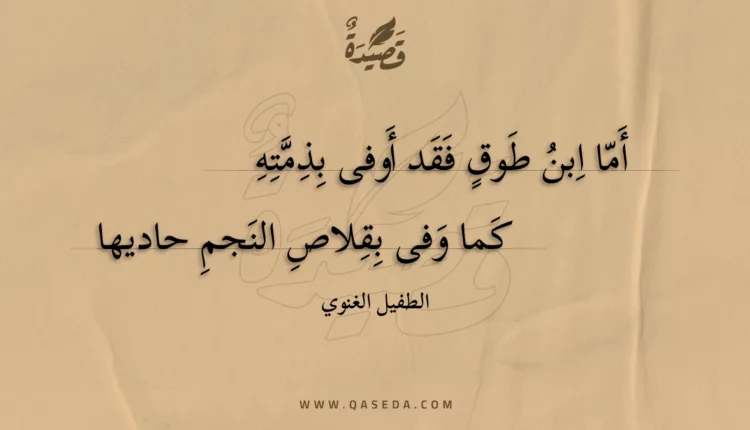 قَصِيْدَةٌ
أَمّا اِبنُ طَوقٍ فَقَد أَوفى بِذِمَّتِهِ
كَما وَفى بِقِلاصِ النَجمِ حاديها
الطفيل الغنوي
WWW.QASEDA.COM